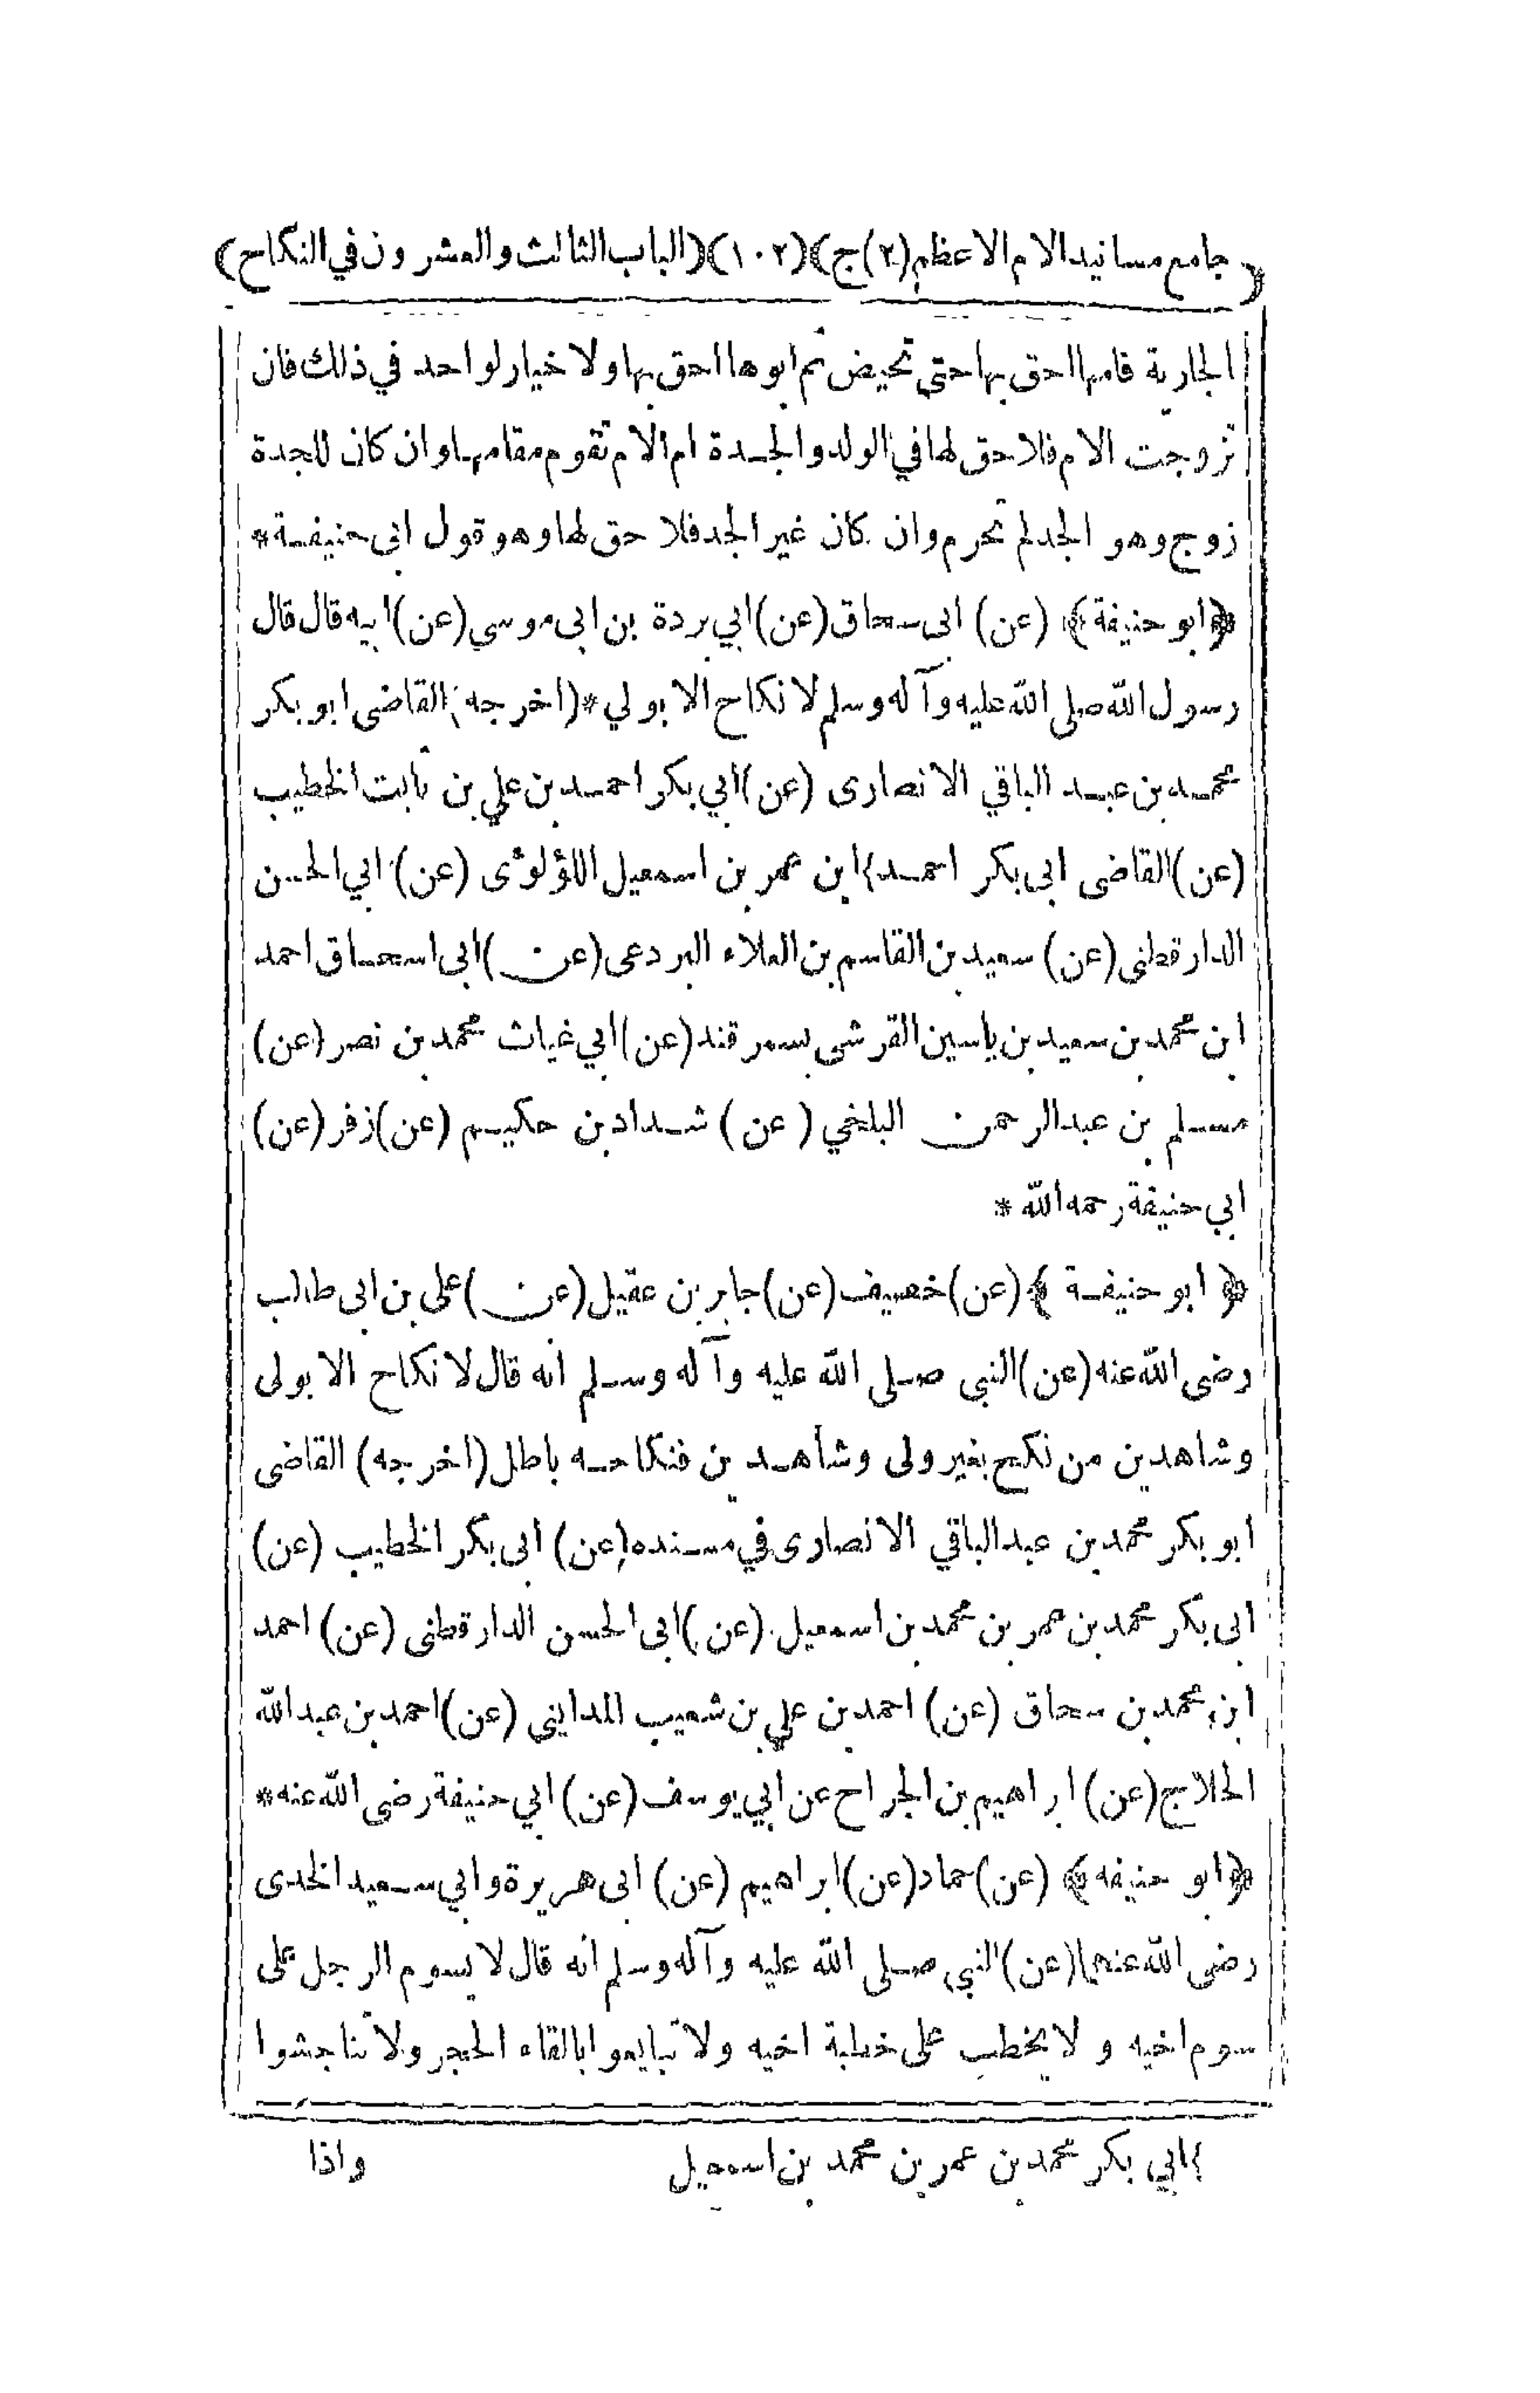 (جامع مسانيد الامام الاعظم (٢) ج) (١٠٢) (الباب الثالث والعشرون في النكاح)
الجارية فامها احق بها حتى تحيض ثم ابوها احق بها ولا خيار لواحد في ذلك فان
تزوجت الام فلا حق لها في الولد والجدة ام الام تقوم مقامها وان كان للجدة
زوج وهو الجد لم تحرم وان كان غير الجد فلا حق لها وهو قول ابى حنيفة *
﴿ابو حنيفة﴾ (عن) ابى سحاق (عن) ابي بردة بن ابى موسى (عن) ابيه قال قال
رسول الله صلى الله عليه وآله وسلم لا نكاح الا بولي * (اخرجه) القاضى ابو بكر
محمد بن عبد الباقي الانصارى (عن) ابي بكر احمد بن علي بن ثابت الخطيب
(عن) القاضى ابى بكر احمد} ابن عمر بن اسمعيل اللؤلوئى (عن) ابي الحسن
الدارقطنى (عن) سعيد بن القاسم بن العلاء البردعى (عن) ابى اسحاق احمد
ابن محمد بن سعيد بن ياسين القرشى بسمرقند (عن) ابي غياث محمد بن نصر (عن)
مسلم بن عبد الرحمن البلخي (عن) شداد بن حكيم (عن) زفر (عن)
ابي حنيفة رحمه الله *
﴿ابو حنيفة﴾ (عن) خصيف (عن) جابر بن عقيل (عن) على بن ابى طالب
رضى الله عنه (عن) النبى صلى الله عليه وآله وسلم انه قال لا نكاح الا بولى
وشاهدين من نكح بغير ولى وشاهدين فنكاحه باطل (اخرجه) القاضى
ابو بكر محمد بن عبد الباقي الانصارى في مسنده (عن) ابى بكر الخطيب (عن)
ابى بكر محمد بن عمر بن محمد بن اسمعيل (عن) ابى الحسن الدارقطنى (عن) احمد
ابن محمد بن سحاق (عن) احمد بن علي بن شعيب المدايني (عن) احمد بن عبد الله
الحلاج (عن) ابراهيم بن الجراح عن ابي يوسف (عن) ابي حنيفة رضى الله عنه *
﴿ابو حنيفه﴾ (عن) حماد (عن) ابراهيم (عن) ابى هريرة وابي سعيد الخدى
رضى الله عنهما (عن) النبي صلى الله عليه وآله وسلم انه قال لا يسوم الرجل على
سوم اخيه و لا يخطب على خطبة اخيه ولا تبايعوا بالقاء الحجر ولا تناجشوا
} ابي بكر محمد بن عمر بن محمد بن اسمعيل
واذا